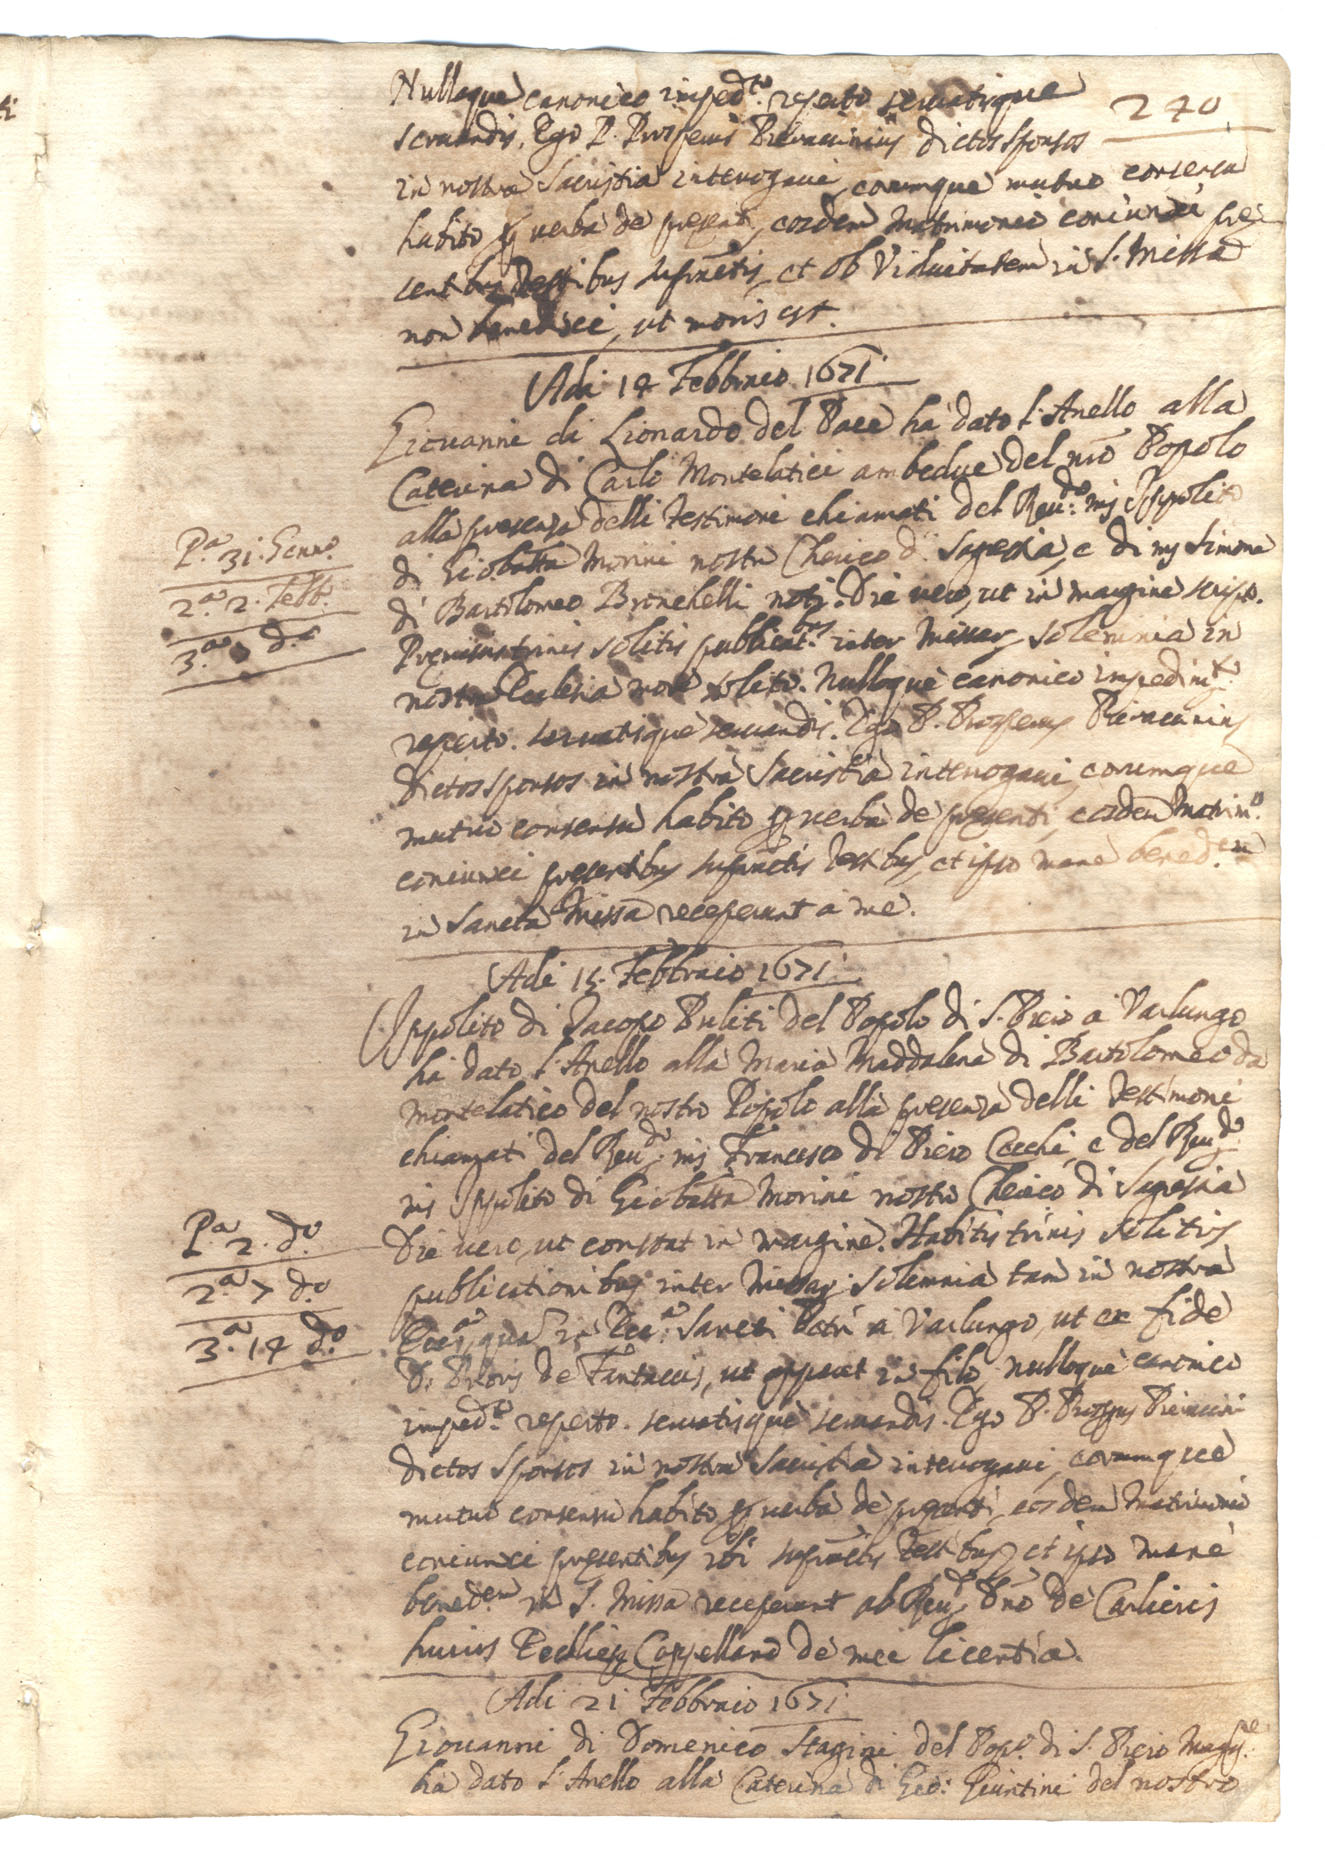 240
Nulloque canonico imped.to reperto servatisque
servandis. Ego P. Prosperus Pieraccinius dictos sponsos
in nostra Sacristia interrogavi, eorumque mutuo consensu
habito per verba de presenti, eosdem Matrimonio coniunxi pre
sentibus Testibus suprad.tis, et ob Viduitatem in S. Missa
non benedixi, ut moris est.
Adi 14 Febbraio 1671
Giovanni di Lionardo del Pace ha dato l'Anello alla
Caterina di Carlo Montelatici ambedue del nro Popolo
alla presenza delli Testimoni chiamati del Reu:do mj Ippolito
P.a 31. Genn.o
di Giobatta Morini nostro Cherico di Sagrestia, e di mj Simone
2.a 2. Febb.
di Bartolomeo Bronchelli noti. Die vero, ut in margine scripto.
3.a d.o
Premissis trinis solitis publicat.bus inter Missar. solemnia in
nostra Ecclesia more solito. Nulloque canonico impedim.to
reperto. servatisque servandis. Ego P. Prosperus Pieraccinius
dictos sponsos in nostra Sacristia interrogavi, eorumque
mutuo consensu habito per verba de presenti, eosdem Matrim.o
coniunxi presentibus supradictis Testibus, et ipso mane bened.em
in Sancta Missa receperunt a me.
Adi 15. Febbraio 1671
Ippolito di Jacopo Puliti del Popolo di S. Piero a Varlungo
ha dato l'Anello alla Maria Maddalena di Bartolomeo da
Montelatico del nostro Popolo alla presenza delli Testimoni
chiamati del Reu.do mj Francesco di Piero Cecchi, e del Reu.do
mj Ippolito di Giobatta Morini nostro Cherico di Sagrestia
P.a 2. d.o
Die vero, ut constat in margine. Habitis trinis solitis
2.a 7 d.o
publicationibus inter Missar. solemnia tam in nostra
3.a 14 d.o
Eccl.a, qua in Eccl.a Sancti Petri a Varlungo, ut ex fide
D. Prioris de, ut apparet in filo nulloque canonico
imped.to reperto. servatisque servandis. Ego P. Prosperus Pieraccini
dictos sponsos in nostra Sacristia interrogavi, eorumque
mutuo consensu habito per verba de presenti, eosdem Matrimonio
coniunxi presentibus ibi supradictis Testibus, et ipso mane
bened.em in S. Missa receperunt ab Reu.do Dno de Carlieris
huius Ecclesie Cappellano de mee licentia.
Adi 21 Febbraio 1671
Giovanni di Domenico Stagini del Pop.o di S. Piero Magg.e
ha dato l'Anello alla Caterina di Gio: Giuntini del nostro